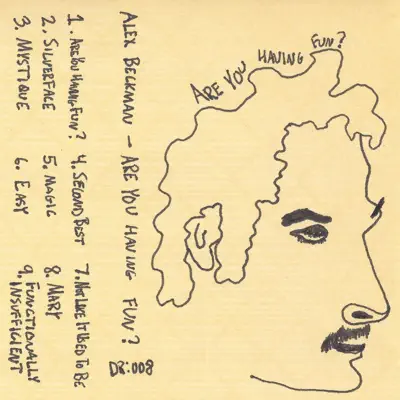 ARE YOU HAVING FUN?
ALEX BECKMAN – ARE YOU HAVING FUN?
D8:008
1. ARE YOU HAVING FUN?
2. SILVERFACE
3. MYSTIQUE
4. SECOND BEST
5. MAGIC
6. EASY
7. NOT LIKE IT USED TO BE
8. MARY
9. FUNCTIONALLY
INSUFFICIENT